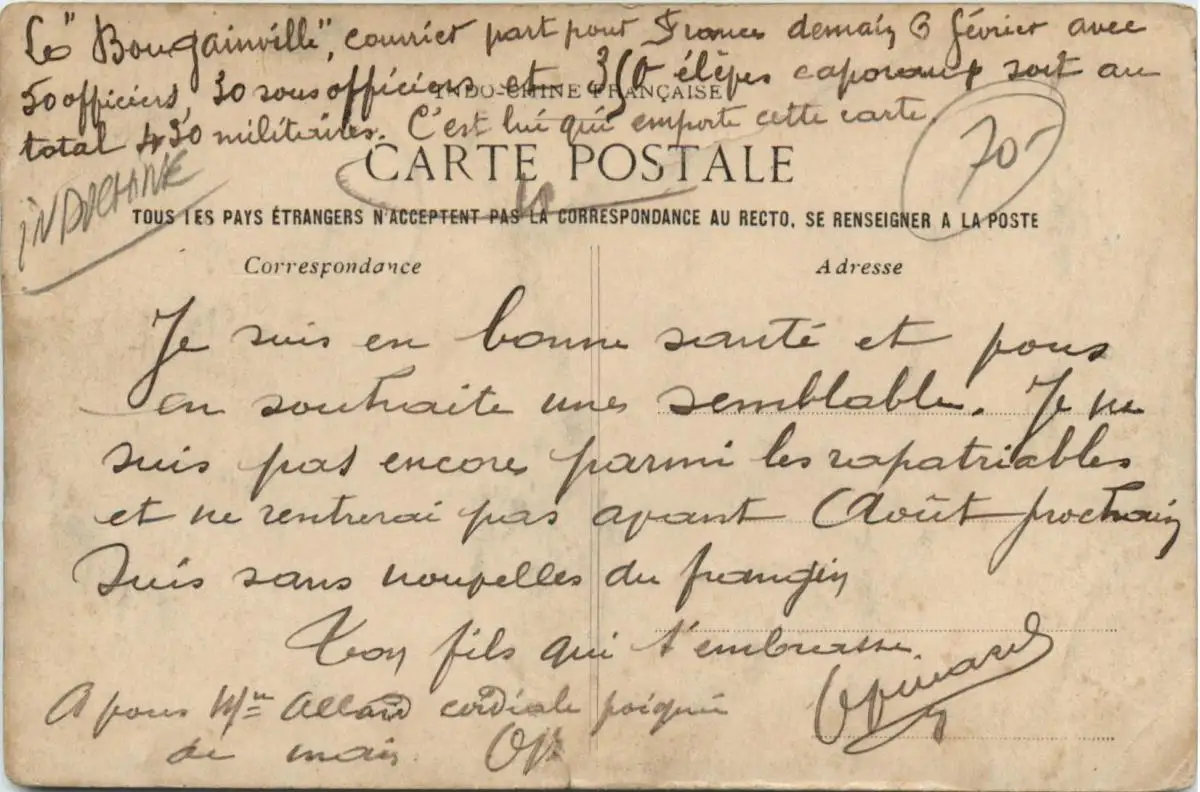 Le "Bougainville", courrier part pour France demain 6 février avec
50 officiers, 30 sous officiers et 350 élèves caporaux soit au
INDO-CHINE FRANÇAISE
total 430 militaires. C'est lui qui emporte cette carte.
70-
INDOCHINE
CARTE POSTALE
TOUS LES PAYS ÉTRANGERS N'ACCEPTENT PAS LA CORRESPONDANCE AU RECTO, SE RENSEIGNER A LA POSTE
Correspondance
Adresse
Je suis en bonne santé et vous
en souhaite une semblable. Je ne
suis pas encore parmi les rapatriables
et ne rentrerai pas avant Août prochain
Suis sans nouvelles du frangin
Ton fils qui t'embrasse.
A vous Mme Allard cordiale poignée
de main